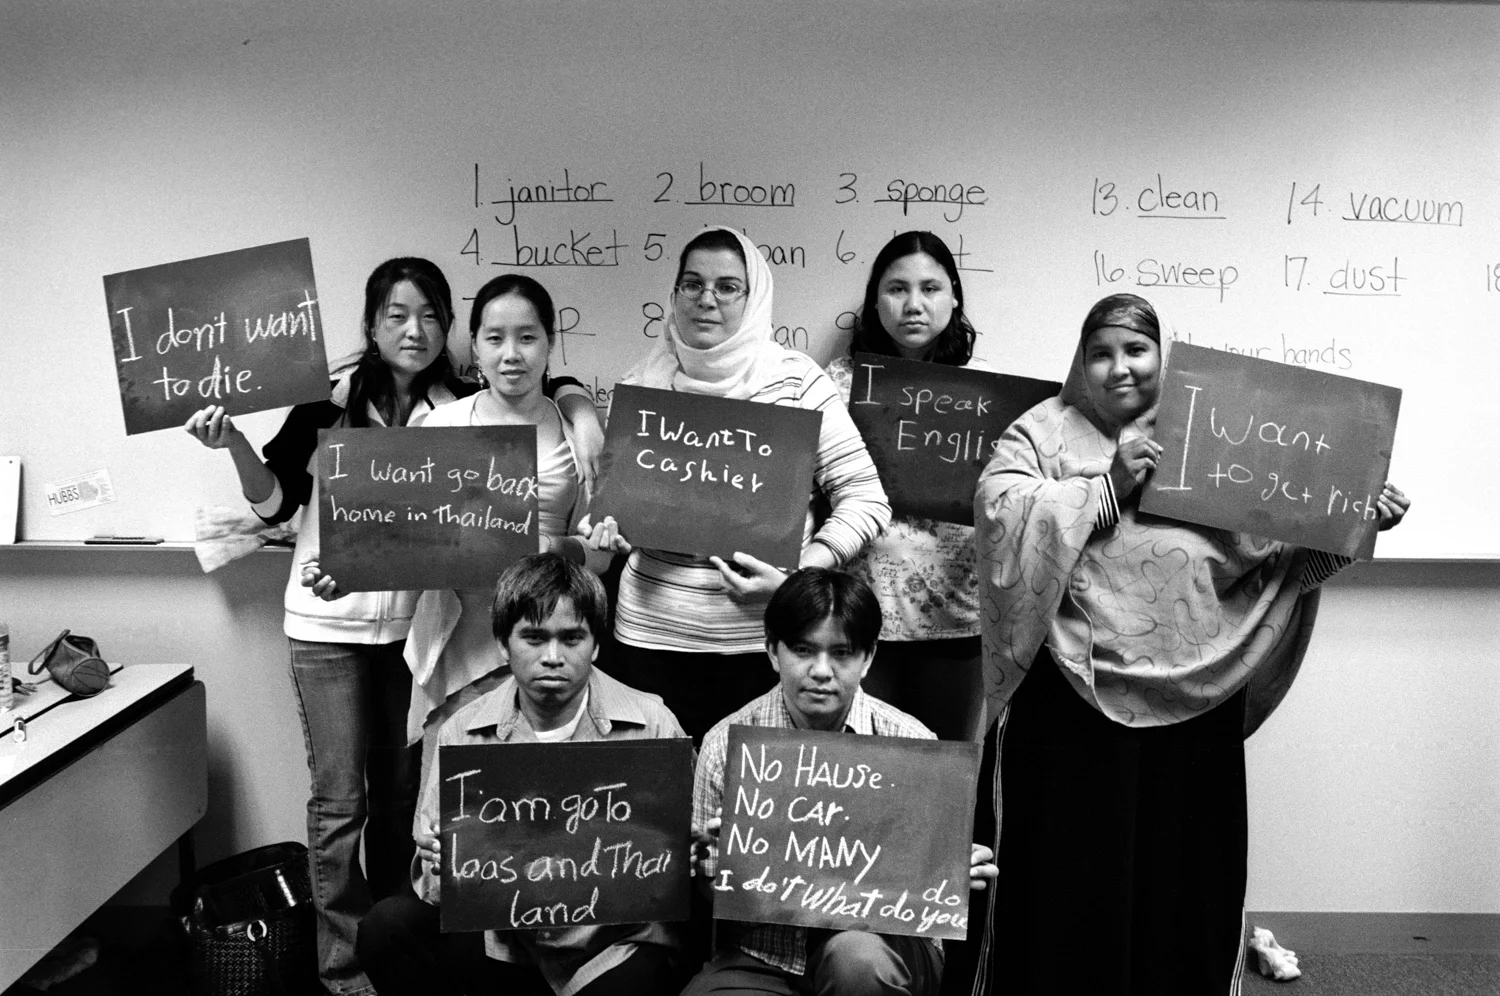 1. janitor 2. broom 3. sponge
13. clean 14. vacuum
4. bucket 5. pan 6.
16. sweep 17. dust 18
8. 9
your hands
HUBBS
I don't want
to die.
I want go back
home in Thailand
I Want To
cashier
I speak
Englis
I want
to get rich
I am go To
laas and Thai
land
No HAUSe.
No CAr.
No MANY
I do't What do you
do